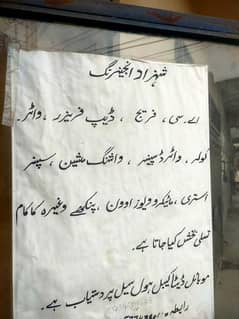 شہزاد انجینئرنگ
اے۔سی ، فریج ، ڈیپ فریزر ، واٹر۔
کولر ، واٹر ڈسپینسر ، واشنگ مشین ، سپنر
استری ، مائیکرو ویوز اوون ، پنکھے وغیرہ کا کام
تسلی بخش کیا جاتا ہے۔
موبائل ڈیٹا کیبل ہول سیل پر دستیاب ہے۔
رابطہ